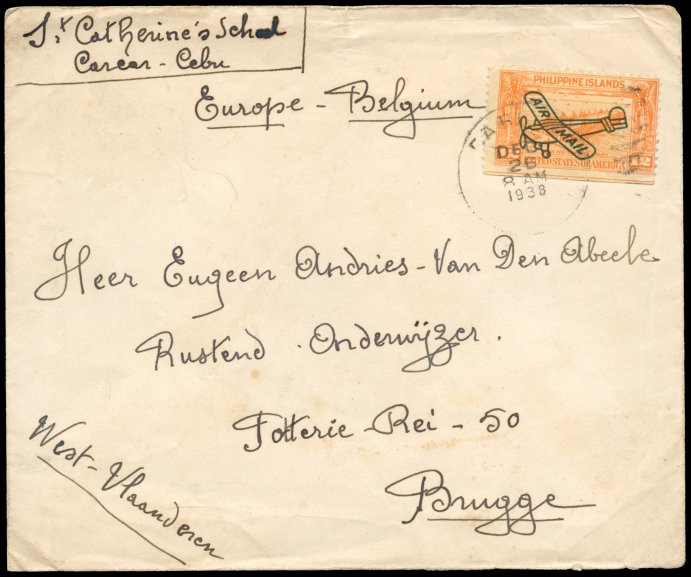 St Catherine's School
Carcar - Cebu
Europe - Belgium
PHILIPPINE ISLANDS
AIR MAIL
UNITED STATES OF AMERICA
2
CAR
DEC
26
8 AM
1938
Heer Eugeen Andries - Van Den Abeele
Rustend Onderwijzer.
Potterie - Rei - 50
Brugge
West-Vlaanderen